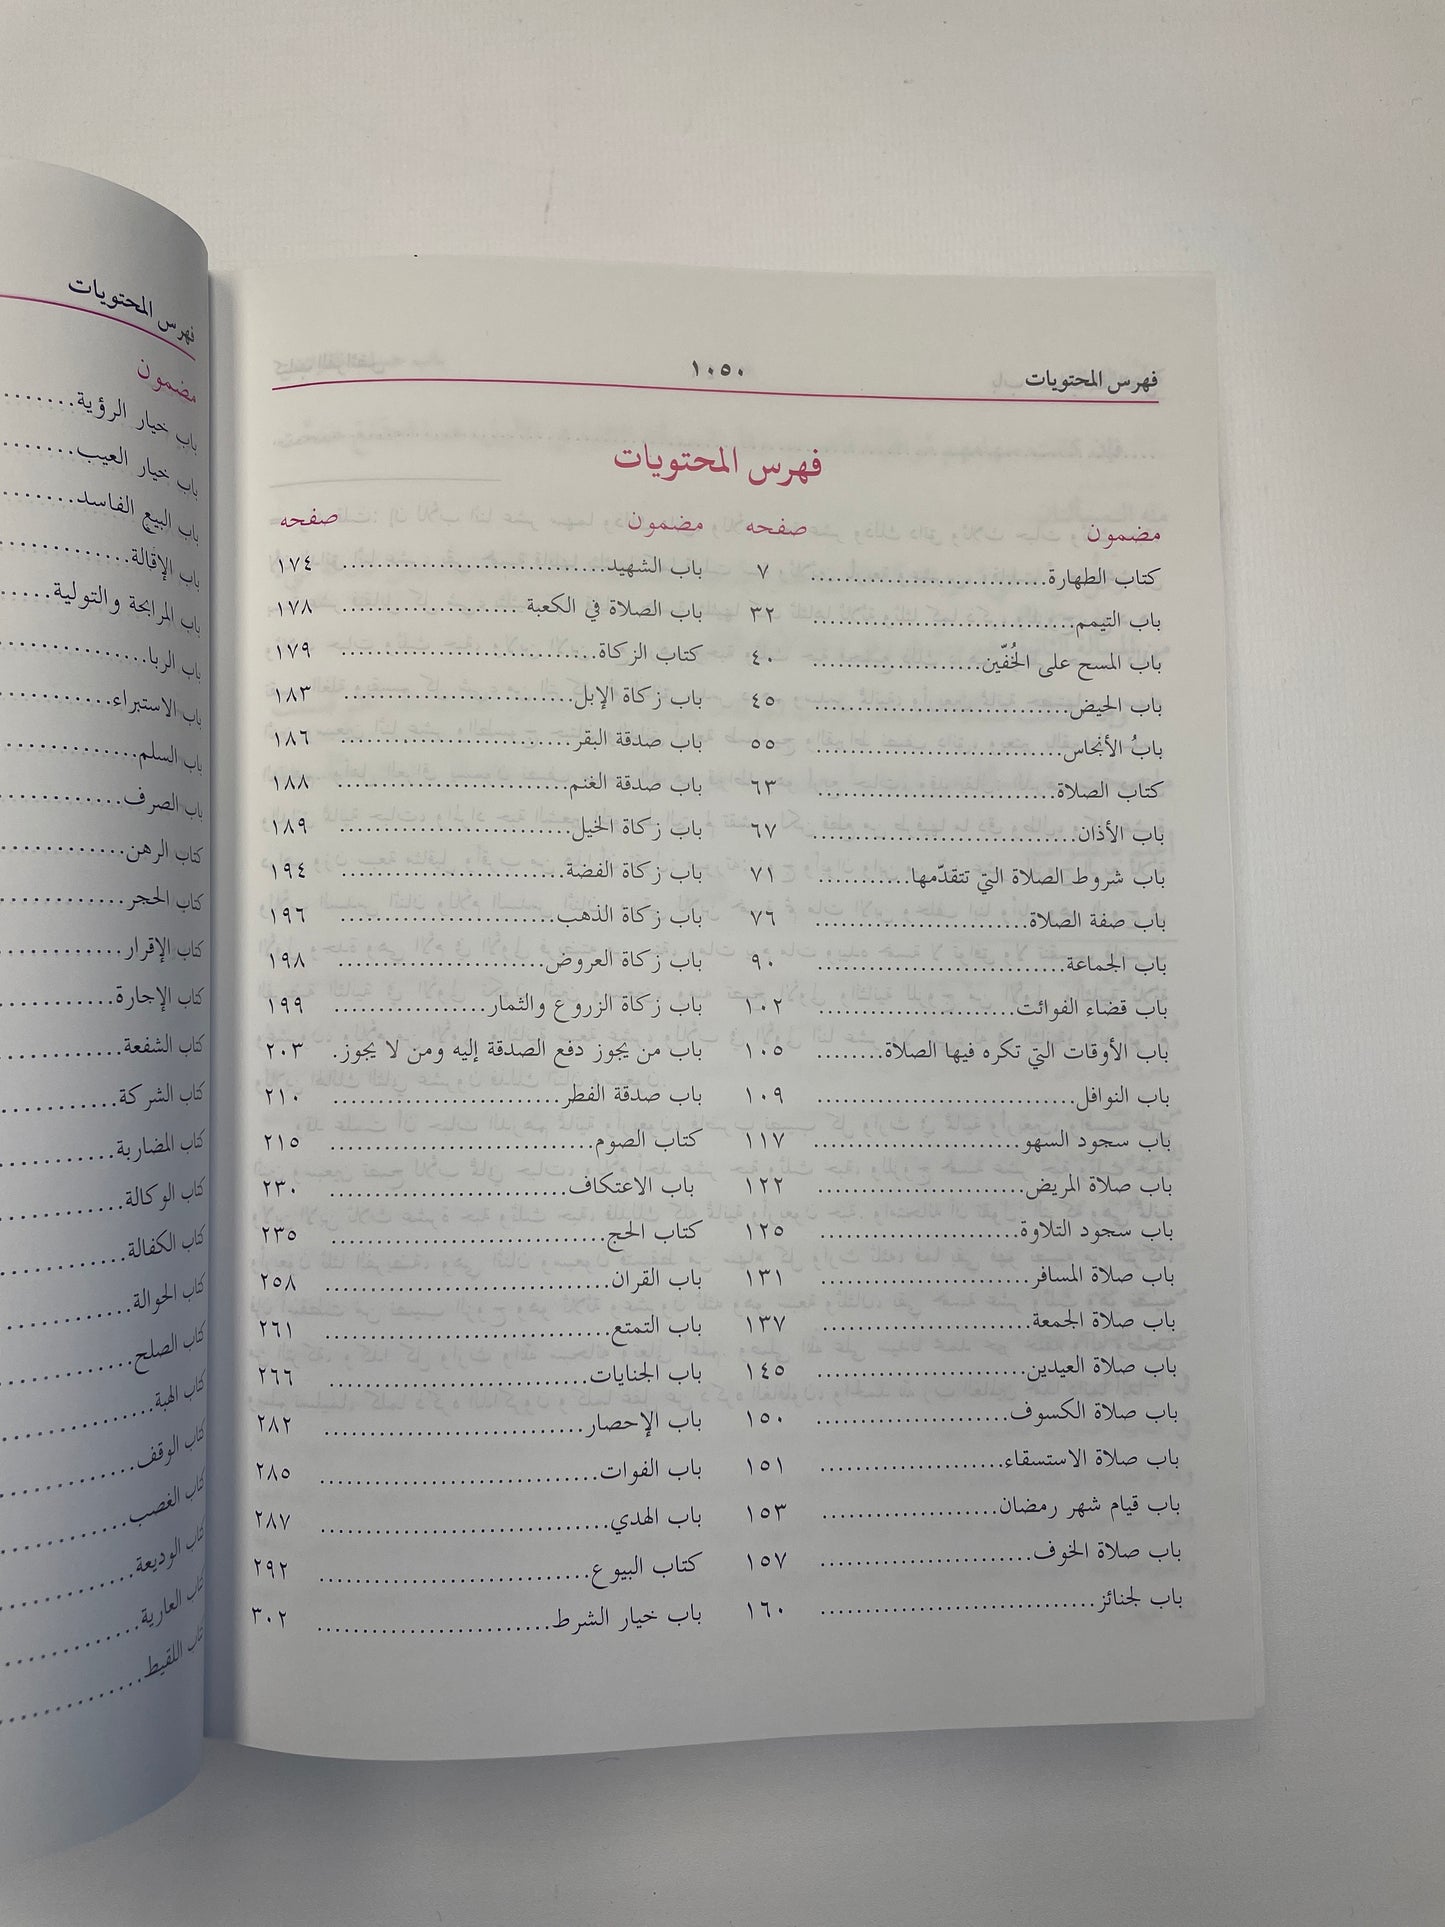 فهرس المحتويات ١٠٥٠
فهرس المحتويات
مضمون صفحه
كتاب الطهارة........................ ٧
باب التيمم........................ ٣٢
باب المسح على الخُفّين........................ ٤٠
باب الحيض........................ ٤٥
بابُ الأنجاس........................ ٥٥
كتاب الصلاة........................ ٦٣
باب الأذان........................ ٦٧
باب شروط الصلاة التي تتقدّمها........... ٧١
باب صفة الصلاة........................ ٧٦
باب الجماعة........................ ٩٠
باب قضاء الفوائت........................ ١٠٢
باب الأوقات التي تكره فيها الصلاة........ ١٠٥
باب النوافل........................ ١٠٩
باب سجود السهو........................ ١١٧
باب صلاة المريض........................ ١٢٢
باب سجود التلاوة........................ ١٢٥
باب صلاة المسافر........................ ١٣١
باب صلاة الجمعة........................ ١٣٧
باب صلاة العيدين........................ ١٤٥
باب صلاة الكسوف........................ ١٥٠
باب صلاة الاستسقاء........................ ١٥١
باب قيام شهر رمضان........................ ١٥٣
باب صلاة الخوف........................ ١٥٧
باب لجنائز........................ ١٦٠
مضمون صفحه
باب الشهيد........................ ١٧٤
باب الصلاة في الكعبة ........................ ١٧٨
كتاب الزكاة........................ ١٧٩
باب زكاة الإبل........................ ١٨٣
باب صدقة البقر........................ ١٨٦
باب صدقة الغنم........................ ١٨٨
باب زكاة الخيل........................ ١٨٩
باب زكاة الفضة........................ ١٩٤
باب زكاة الذهب........................ ١٩٦
باب زكاة العروض........................ ١٩٨
باب زكاة الزروع والثمار........................ ١٩٩
باب من يجوز دفع الصدقة إليه ومن لا يجوز. ٢٠٣
باب صدقة الفطر........................ ٢١٠
كتاب الصوم........................ ٢١٥
باب الاعتكاف........................ ٢٣٠
كتاب الحج........................ ٢٣٥
باب القران........................ ٢٥٨
باب التمتع........................ ٢٦١
باب الجنايات........................ ٢٦٦
باب الإحصار........................ ٢٨٢
باب الفوات........................ ٢٨٥
باب الهدي........................ ٢٨٧
كتاب البيوع........................ ٢٩٢
باب خيار الشرط........................ ٣٠٢
فهرس المحتويات
مضمون
باب خيار الرؤية........
باب خيار العيب........
باب البيع الفاسد........
باب الإقالة............
باب المرابحة والتولية.....
باب الربا............
باب الاستبراء..........
باب السلم............
باب الصرف............
كتاب الرهن............
كتاب الحجر............
كتاب الإقرار............
كتاب الإجارة............
كتاب الشفعة............
كتاب الشركة............
كتاب المضاربة............
كتاب الوكالة............
كتاب الكفالة............
كتاب الحوالة............
كتاب الصلح............
كتاب الهبة............
كتاب الوقف............
كتاب الغصب............
كتاب الوديعة............
كتاب العارية............
كتاب اللقيط............